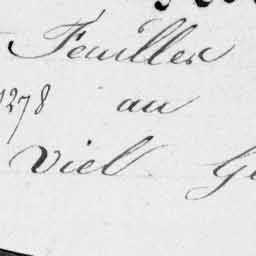 Feuiller
1278 au
Viel